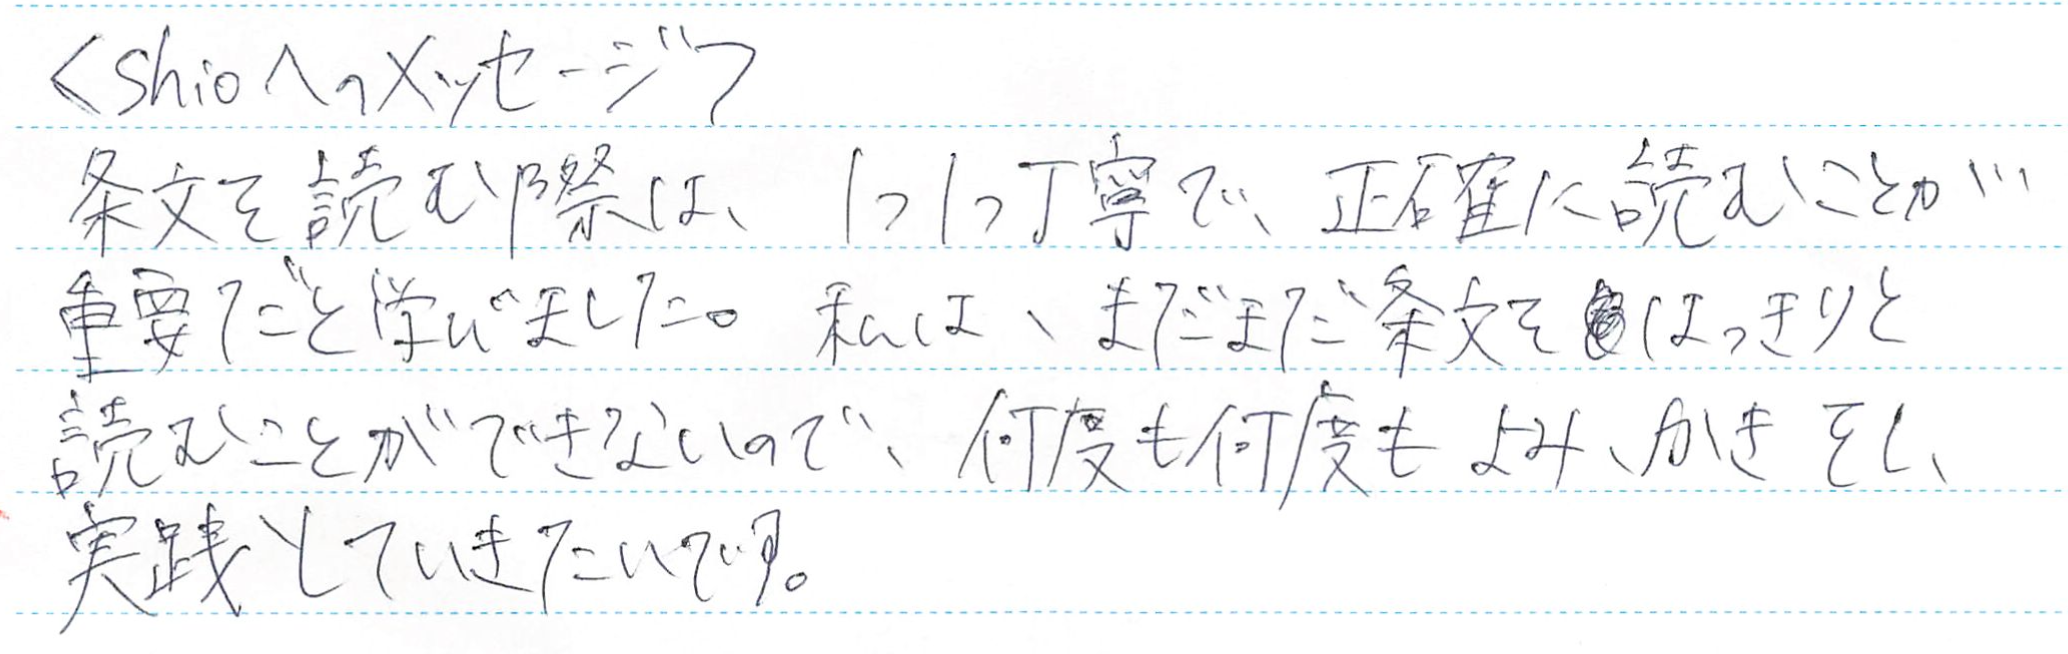 <Shioへのメッセージ>
条文を読む際は、1つ1つ丁寧で、正確に読むことが
重要だと学びました。私は、まだまだ条文をはっきりと
読むことができないので、何度も何度もよみ、かきをし、
実践していきたいです。